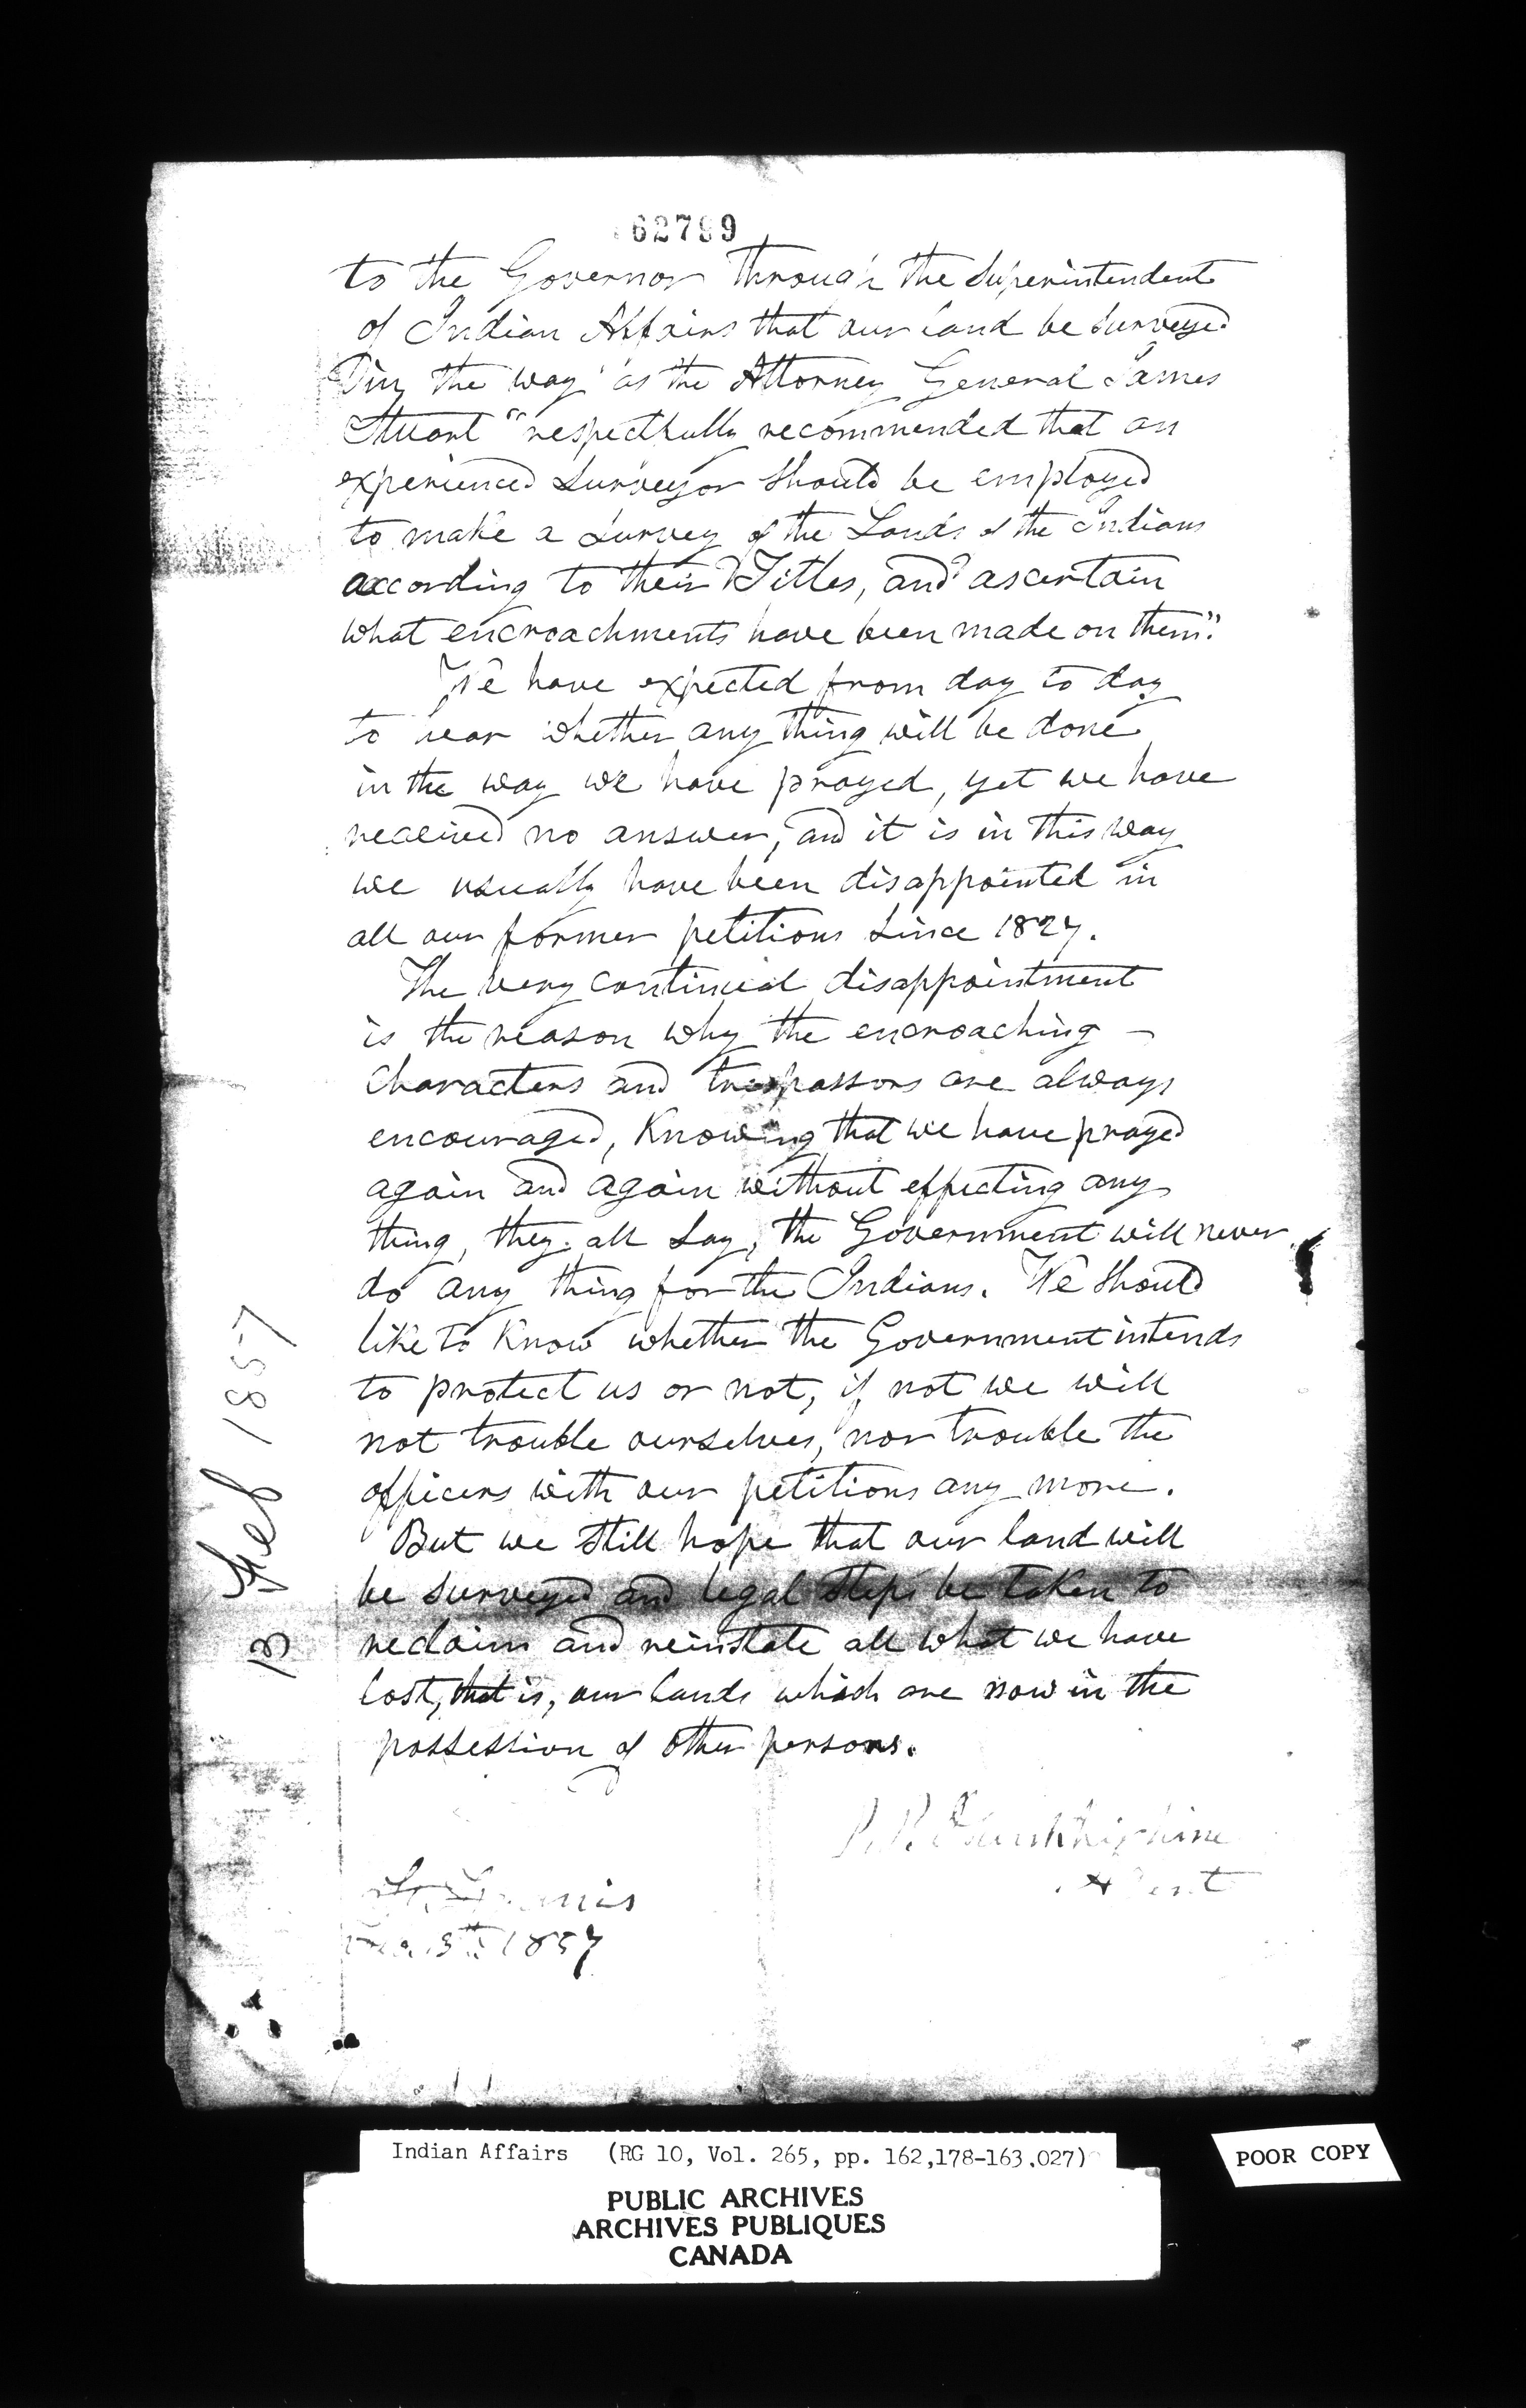 62799
to the Governor through the Superintendent
of Indian Affairs that our land be surveyed
"in the way" as the Attorney General James
Stuart "respectfully recommended that an
experienced Surveyor should be employed
to make a Survey of the Lands of the Indians
according to their Titles, and ascertain
what encroachments have been made on them".
We have expected from day to day
to hear whether any thing will be done
in the way we have prayed, yet we have
received no answer, and it is in this way
we usually have been disappointed in
all our former petitions since 1827.
The very continual disappointment
is the reason why the encroaching –
characters and trespassors are always
encouraged, Knowing that we have prayed
again and again without effecting any
thing, they all say, the Government will never
do any thing for the Indians. We should
like to Know whether the Government intends
to protect us or not, if not we will
not trouble ourselves, nor trouble the
officers with our petitions any more.
But we still hope that our land will
be surveyed and legal steps be taken to
reclaim and reinstate all what we have
lost, that is, our lands which are now in the
possession of other persons.
Agent
St. Francis
5th 1857
13 Feb 1857
Indian Affairs (RG 10, Vol. 265, pp. 162,178-163,027)
PUBLIC ARCHIVES
ARCHIVES PUBLIQUES
CANADA
POOR COPY